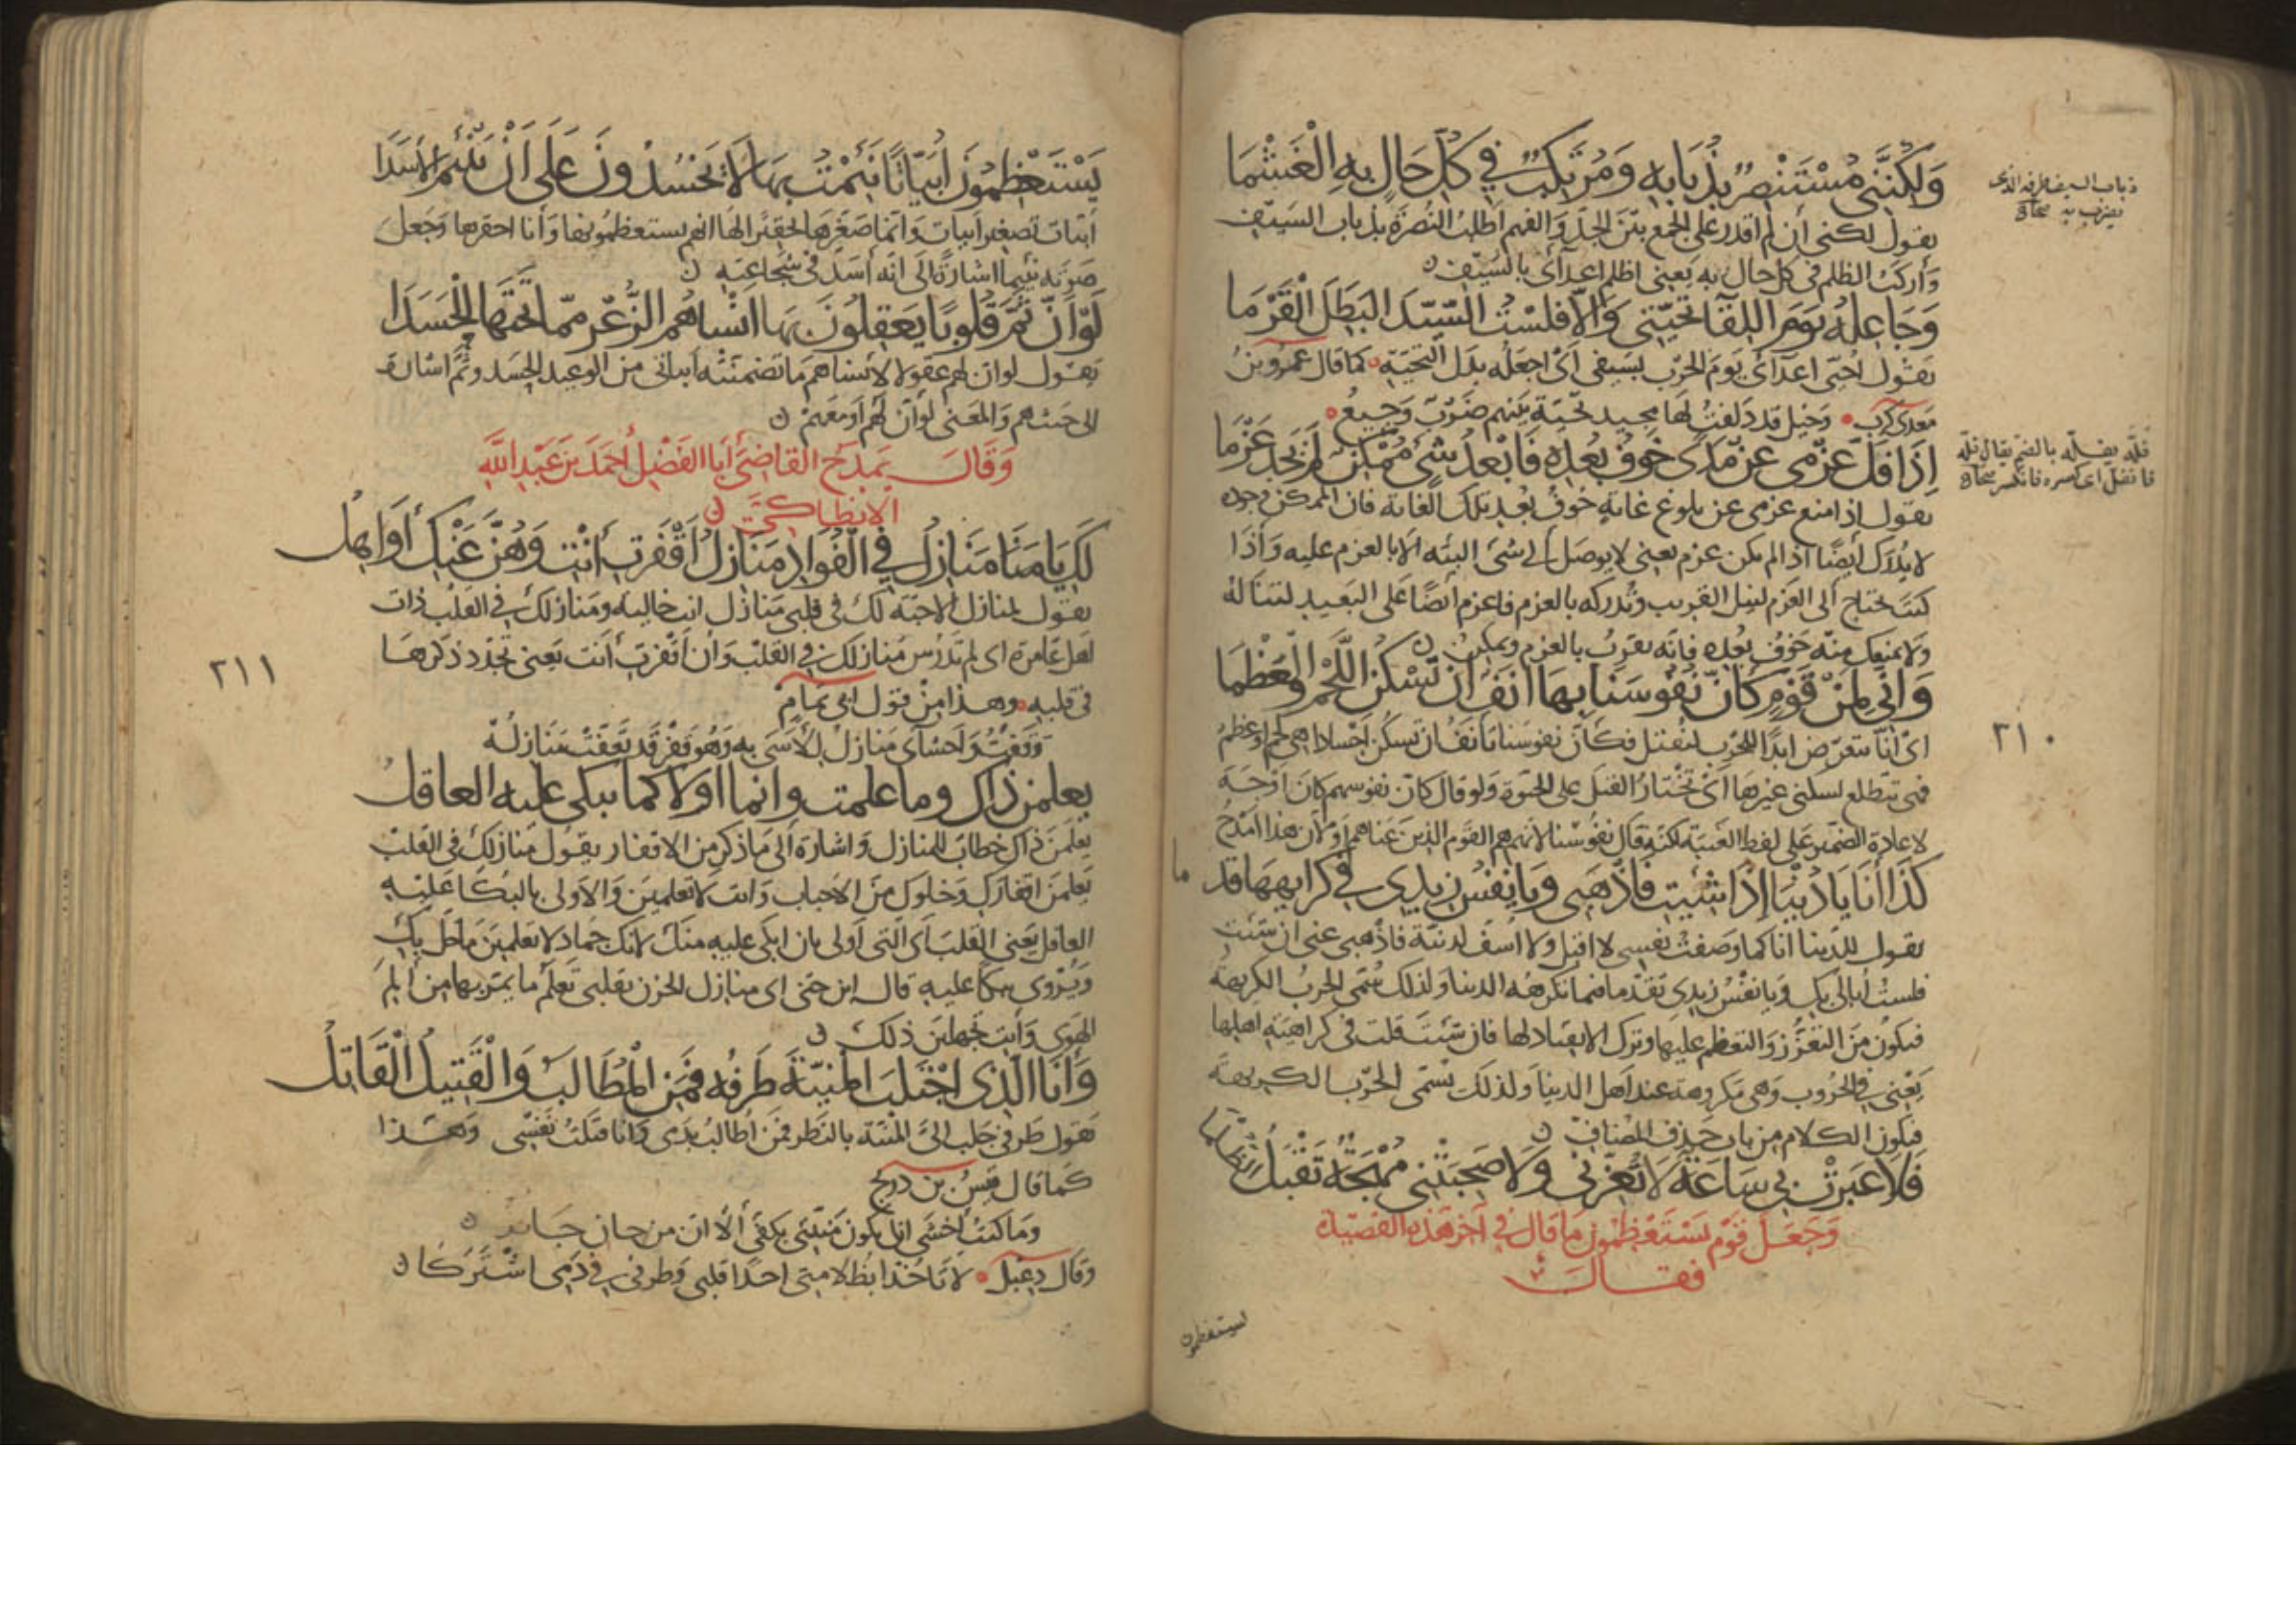 وَلٰكِنَّنِي مُسْتَنْصِرٌ بِذُبَابِهِ وَمُرْتَكِبٌ فِي كُلِّ حَالٍ بِهِ الْغَشْمَا
ذباب السيف طرفه الذى
يضرب به صحاح
يقول لكنى ان لم اقدر على الجمع بين الجد والفهم اطلب النصرة بذباب السيف
وَأركبُ الظلم فى كل حال به يعنى اظلم اعدآى بالسيف
وَجَاعِلُهُ يَوْمَ اللِّقَآ تَحِيَّتِي وَاِلَّا فَلَسْتُ السَّيِّدَ البَطَلَ الْقَرْمَا
يقول احيّى اعدآى يوم الحرب بسيفى أى اجعله بدل التحية كما قال عمرو بن
معدى كرب وخيل قد دلفت لها بخيل تحية بينهم ضرب وجيع
اِذَا فَلَّ عَزْمِي عَنْ مَدًى خَوْفُ بُعْدِهِ فَأَبْعَدُ شَيْ مُمْكِنٌ لَمْ يَجِدْ عَزْمَا
فلّه يفلّه بالضم يقال فلّه
فانفل اى كسره فانكسر صحاح
يقول اذا منع عزمى عن بلوغ غاية خوف بعد تلك الغاية فان الممكن وجوده
لا يدرك أيضًا اذا لم يكن عزم يعنى لا يوصل الى شئ البته الا بالعزم عليه وَاذَا
كنت تحتاج الى العزم لنيل القريب وتدركه بالعزم فاعزم أيضًا على البعيد لتناله
ولا يمنعك منه خوف بعده فانه يقرب بالعزم ويمكن
وَاِنِّي لَمِنْ قَوْمٍ كَأَنَّ نُفُوسَنَا بِهَا أَنَفٌ اَنْ تَسْكُنَ اللَّحْمَ وَالْعَظْمَا
٢١٠
اى انا نتعرض ابدًا للحرب لنقتل فكأن نفوسنا تأنف أن تسكن أجسادا هى لحم وعظم
فهى تتطلع لسكنى غيرها اى تختار القتل على الحيوة ولو قال كان نفوسهم كان اوجه
لاعادة الضمير على لفظ الغيبة لكنه قال نفوسنا لانهم هم القوم الذين عناهم ولان هذا امدح
كَذَا أَنَا يَا دُنْيَا إِذَا شِئْتِ فَاذْهَبِي وَيَا نَفْسُ زِيدِي فِي كَرَايِهِهَا قُدْمَا
يقول للدنيا انا كما وصفت نفسى لا اقبل ولا اسف لدنية فاذهبى عنى ان شئت
فلست أبالى بك ويا نفس زيدى تقدما فيما تكرهه الدنيا ولذلك سمى الحرب الكريهة
فيكون من التعزز والتعظم عليها وترك الانقياد لها فان شئت قلت فى كراهية اهلها
يعنى فى الحروب وهى مكروهة عند اهل الدنيا ولذلك تسمى الحرب الكريهة
فيكون الكلام من باب حذف المضاف
فَلَا عَبَرَتْ بِي سَاعَةٌ لَا تُعِزُّنِي وَلَا صَحِبَتْنِي مُهْجَةٌ تَقْبَلُ الظُّلْمَا
وَجَعَلَ قَوْمٌ يَسْتَعْظِمُونَ مَا قَالَ فِي آخِرِ هَذِهِ القَصِيدَةِ
فقال
يستعظمون
يَسْتَعْظِمُونَ أُبَيَّاتًا نَأَمْتُ بِهَا لَا تَحْسُدُونَ عَلَى اَنْ يَنْئِمَ الْأَسَدَا
أبيّات تصغير أبيات وانما صغرها تحقيرا لها انهم يستعظمونها وأنا احقرها وجعل
صوته نئيما اشارة الى انه أسد فى شجاعته
لَوْ أَنَّ ثَمَّ قُلُوبًا يَعْقِلُونَ بِهَا اَنْسَاهُمُ الذُّعْرُ مِمَّا تَحْتَهَا الْحَسَدَا
يقول لو ان لهم عقولا لأنساهم ما تضمنته أبياتى من الوعيد الحسد وثَمَّ اشارة
الى حيث هم والمعنى لو أن لهم او معهم
وَقَالَ يَمْدَحُ القَاضِيَ أَبَا الفَضْلِ أَحْمَدَ بْنَ عَبْدِ اللَّهِ
الانطاكىّ
لَكِ يَا مَنَازِلُ فِي الْفُوَادِ مَنَازِلُ اَقْفَرْتِ أَنْتِ وَهُنَّ مِنْكِ أَوَاهِلُ
يقول لمنازل الاحبة لك فى قلبى منازل انت خالية ومنازلك فى القلب ذات
اهل عامرة اى لم تدرس منازلك فى القلب وان أقفرت أنت يعنى تجدد ذكرها
٢١١
فى قلبه وهذا من قول ابى تمام
وقفت وأحشآى منازل للأسى به وهو قفر قد تعفت منازله
يعلمن ذاك وما علمت وانما اولاكما يبكى عليه العاقل
يعلمن ذاك خطاب للمنازل واشارة الى ما ذكر من الاقفار يقول منازلك فى القلب
يعلمن اقفارك وخلوك من الاحباب وانت لا تعلمين والاولى بالبكاء عليه
العاقل يعنى القلب أى التى أولى بان ابكى عليه منك لانك جماد لا تعلمين ما حل بك
ويروى ببكا عليه قال ابن جنى اى منازل الحزن بقلبى تعلم ما يمر بها من ألم
الهوى وأنت تجهلين ذلك
وَأَنَا الَّذِى اجْتَلَبَ الْمَنِيَّةَ طَرْفُهُ فَمَنِ الْمُطَالَبُ وَالْقَتِيلُ الْقَاتِلُ
يقول طرفى جلب الىّ المنية بالنظر فمن أطالب بدمى وأنا قتلت نفسى وهذا
كما قال قيس بن ذريح
وما كنت أخشى ان يكون منيتى بكفى ألا ان من حان حاين
وقال دعبل لا تأخذا بظلامتى احدا قلبى وطرفى فى دمى اشتركا